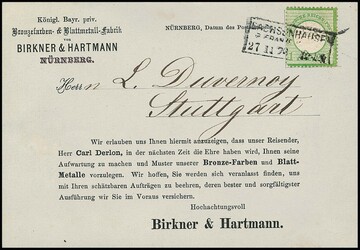 Königl. Bayr. priv.
Bronzefarben- & Blattmetall-Fabrik
von
BIRKNER & HARTMANN
NÜRNBERG.
NÜRNBERG, Datum des Poststempels.
SACHSENHAUSEN
27 11
Herrn L. Duvernoy
Stuttgart
Wir erlauben uns Ihnen hiermit anzuzeigen, dass unser Reisender,
Herr Carl Derlon, in der nächsten Zeit die Ehre haben wird, Ihnen seine
Aufwartung zu machen und Muster unserer Bronze-Farben und Blatt-
Metalle vorzulegen. Wir hoffen, Sie werden sich veranlasst finden, uns
mit Ihren schätzbaren Aufträgen zu beehren, deren bester und sorgfältigster
Ausführung wir Sie im Voraus versichern.
Hochachtungsvoll
Birkner & Hartmann.